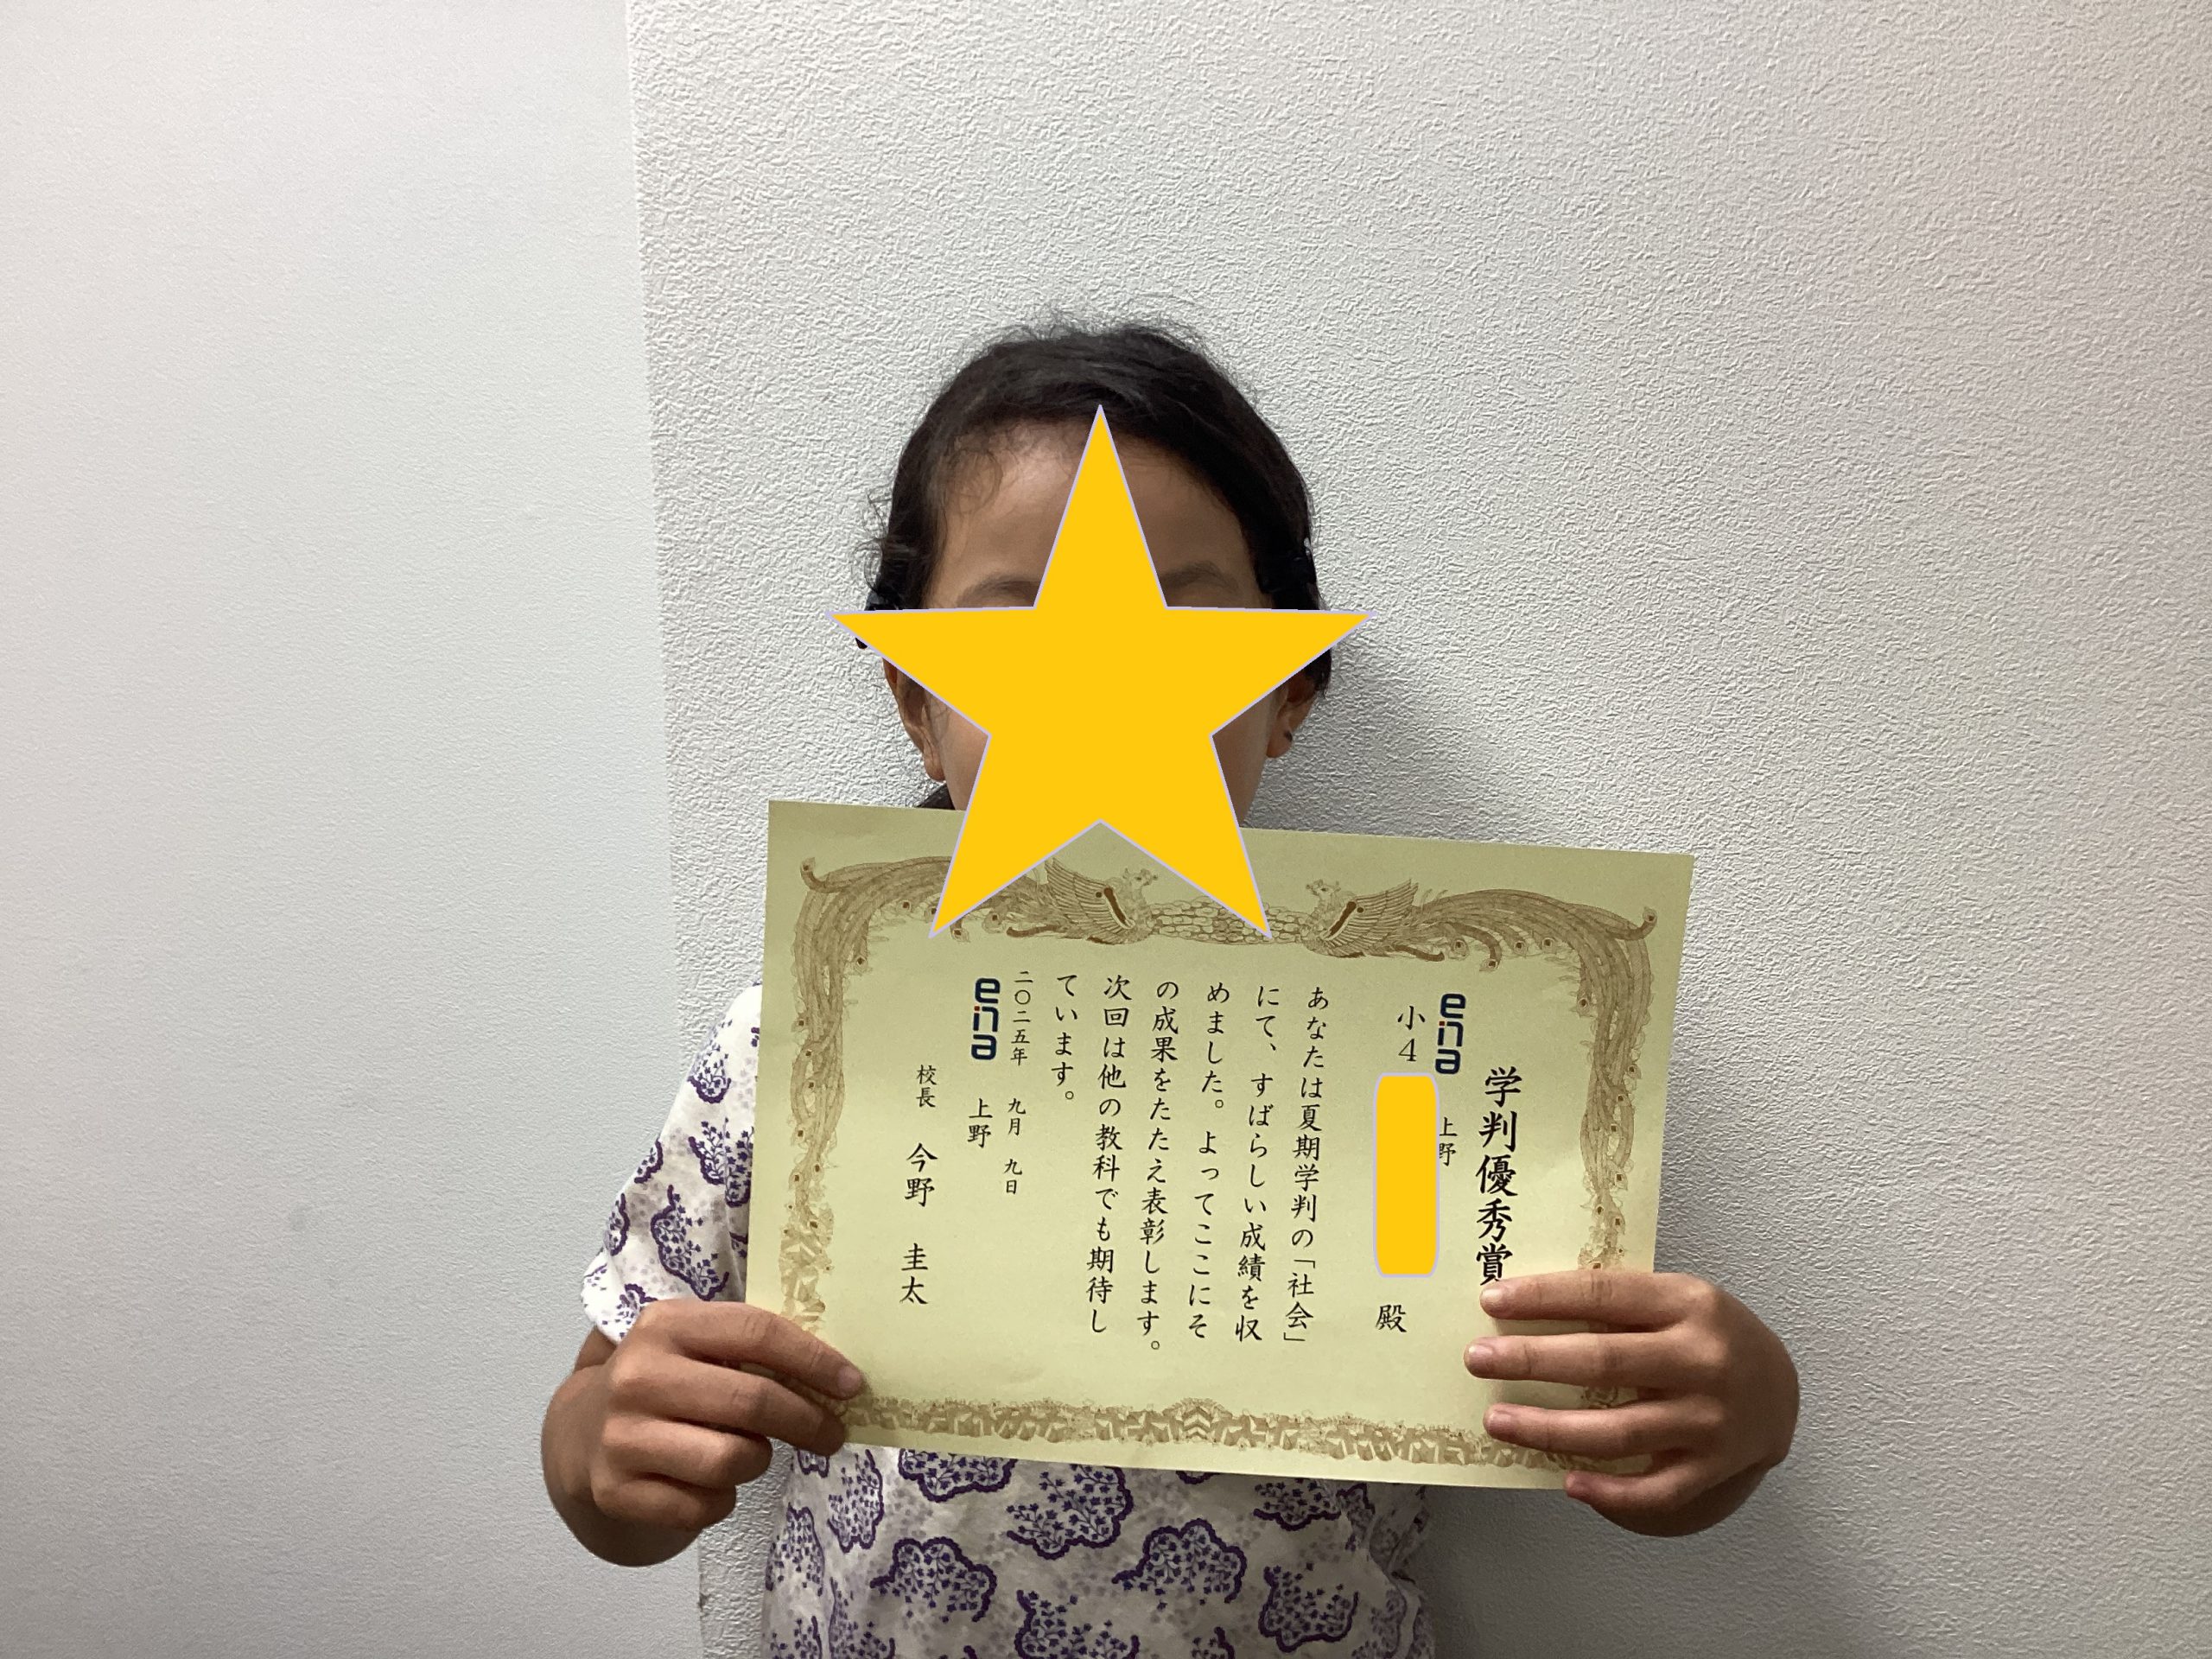 学判優秀賞
ena 上野
小4
殿
あなたは夏期学判の「社会」
にて、すばらしい成績を収
めました。よってここにそ
の成果をたたえ表彰します。
次回は他の教科でも期待し
ています。
二〇二五年 九月 九日
ena 上野
校長 今野 圭太